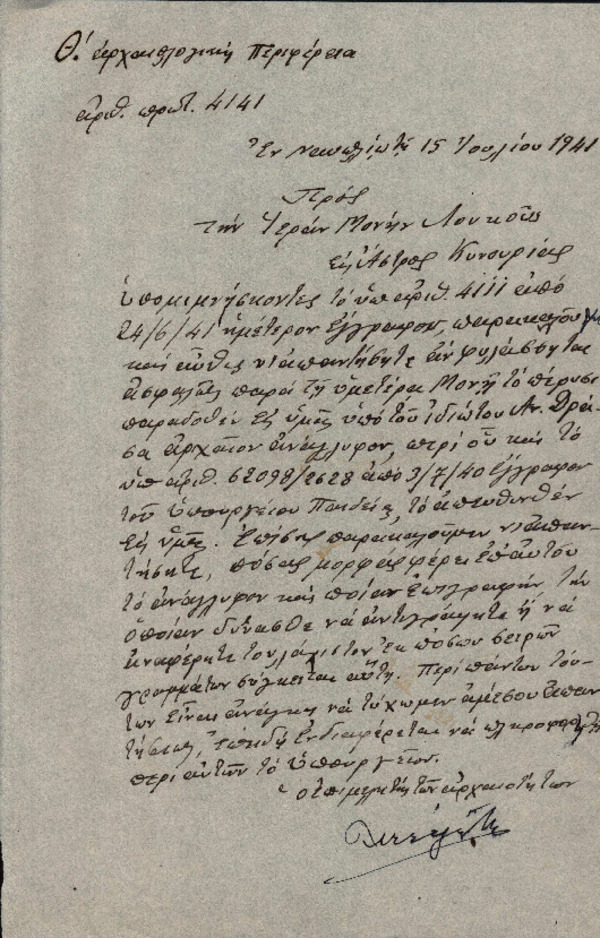 Θ΄. ἀρχαιολογικὴ Περιφέρεια
ἀριθ. πρωτ. 4141
Ἐν Ναυπλίῳ τῇ 15 Ἰουλίου 1941
Πρὸς
τὴν Ἱερὰν Μονὴν Λουκοῦς
Εἰς Ἄστρος Κυνουρίας
Ὑπομιμνήσκοντες τὸ ὑπ' ἀριθ. 4111 ἀπὸ
24/6/41 ἡμέτερον ἔγγραφον, παρακαλοῦμεν
καὶ αὖθις ν' ἀπαντήσητε ἂν φυλάσσηται
ἀσφαλῶς παρὰ τῇ ὑμετέρᾳ Μονῇ τὸ πέρυσι
παραδοθὲν εἰς ὑμᾶς ὑπὸ τοῦ ἰδιώτου Αν. Δρά-
σα ἀρχαῖον ἀνάγλυφον, περὶ οὗ καὶ τὸ
ὑπ' ἀριθ. 62098/2628 ἀπὸ 3/7/40 ἔγγραφον
τοῦ Ὑπουργείου Παιδείας, τὸ ἀπευθυνθὲν
εἰς ὑμᾶς. Ἐπίσης παρακαλοῦμεν ν' ἀπαν-
τήσητε, πόσας μορφὰς φέρει ἐπ' αὐτοῦ
τὸ ἀνάγλυφον καὶ ποίαν ἐπιγραφὴν τὴν
ὁποίαν δύνασθε νὰ ἀντιγράψητε ἢ νὰ
ἀναφέρητε τοὐλάχιστον ἐκ πόσων σειρῶν
γραμμάτων σύγκειται αὕτη. Περὶ πάντων τού-
των εἶναι ἀνάγκη νὰ τύχωμεν ἀμέσου ἀπαν
τήσεως, ἐπειδὴ ἐνδιαφέρεται νὰ πληροφορηθῇ
περὶ αὐτῶν τὸ Ὑπουργεῖον.
Ὁ Ἐπιμελητὴς τῶν ἀρχαιοτήτων